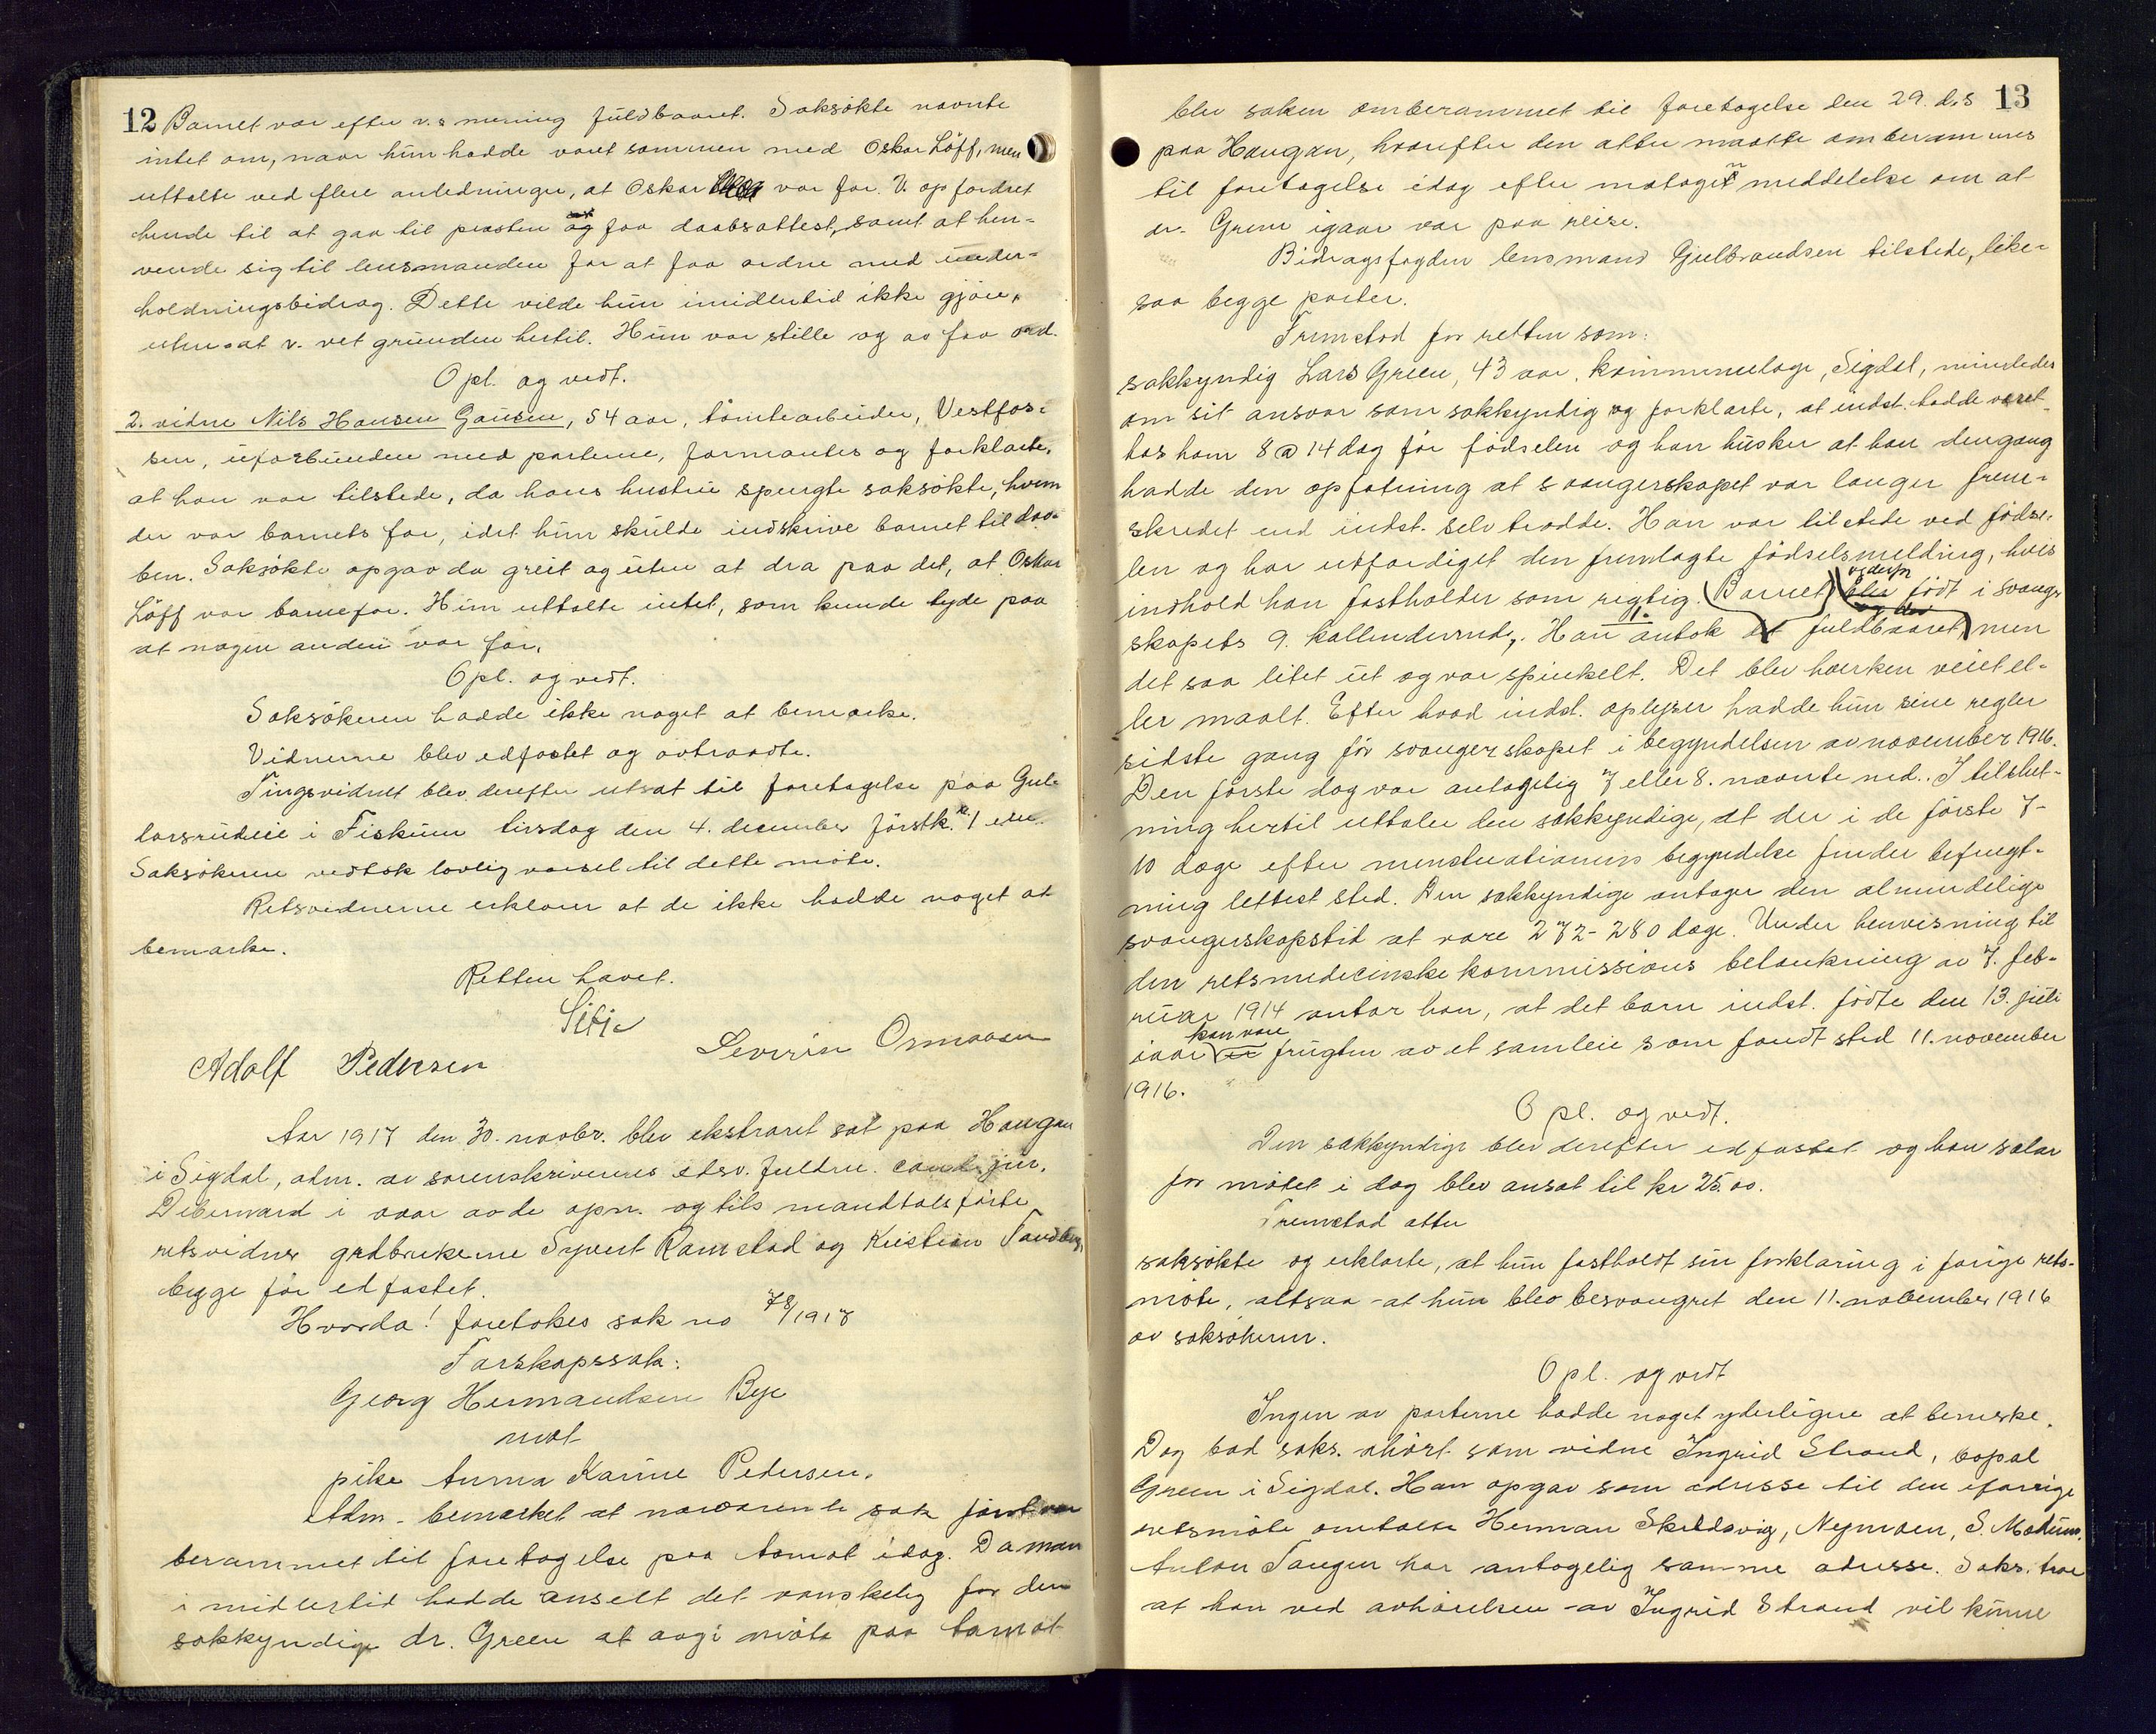 12 Barnet var efter v.s mening fuldbaaret. Saksökte nævnte
intet om, naar hun hadde været sammen med Oskar Löff, men
uttalte ved flere anledninger, at Oskar var far. V. opfordret
hende til at gaa til presten og faa daabsattest, samt at hen-
vende sig til lensmanden for at faa ordne med under-
holdningsbidrag. Dette vilde hun imidlertid ikke gjöre,
uten at v. vet grunden hertil. Hun var stille og av faa ord.
Opl. og vedt.
2. vidne Nils Hansen Gausen, 54 aar, tomtearbeider, Vestfos-
sen, uforbunden med parterne, formantes og forklarte,
at han var tilstede, da hans hustru spurgte saksökte, hvem
der var barnets far, idet hun skulde indskrive barnet til daa-
ben. Saksökte opgav da greit og uten at dra paa det, at Oskar
Löff var barnefar. Hun uttalte intet, som kunde tyde paa
at nogen anden var far.
Opl. og vedt.
Saksökeren hadde ikke noget at bemerke.
Vidnerne blev edfæstet og avtraadte.
Tingsvidnet blev derefter utsat til foretagelse paa Gul-
larsrudeie i Fiskum tirsdag den 4. december förstk. kl. 1 em.
Saksökeren vedtok lovlig varsel til dette möte.
Retsvidnerne erklærer at de ikke hadde noget at
bemerke.
Retten hævet.
Sitje
Adolf Pedersen Severin Ormaasen
Aar 1917 den 30. novbr. blev ekstraret sat paa Haugan
i Sigdal, adm. av sorenskriverens edsv. fuldm. cand. jur.
Debernard i vær av de opn. og tils mandtalsförte
retsvidner grdbrukerne Syvert Ramstad og Kristian Sandberg,
begge för edfæstet.
Hvorda! foretokes sak no 78/1917
Farskapssak:
Georg Hermandsen Bye
mot
pike Anna Karine Pedersen.
Adm. bemerket at nærværende sak först var
berammet til foretagelse paa Aamot idag. Da man
imidlertid hadde anselt det vanskelig for den
sakkyndige dr. Green at avgi möte paa Aamot
blev saken omberammet til foretagelse den 29. d.s 13
paa Haugan, hvorefter den atter maatte omberammes
til foretagelse idag efter motagen meddelelse om at
dr. Green igaar var paa reise.
Bidragsfogden lensmand Gulbrandsen tilstede, like-
saa begge parter.
Fremstod for retten som:
sakkyndig Lars Green, 43 aar, kommunelæge, Sigdal, mindedes
om sit ansvar som sakkyndig og forklarte, at indst. hadde været
hos ham 8 @ 14 dag för födselen og han husker at han dengang
hadde den opfatning at svangerskapet var længer frem-
skredet end indst. selv trodde. Han var tilstede ved födse-
len og har utfærdiget den fremlagte födselsmelding, hvis
indhold han fastholder som rigtig. (Barnet) blev födt i svanger
skapets 9. kallendermnd. Han antok fuldbaaret) men
det saa litet ut og var spinkelt. Det blev hverken veiet el-
ler maalt. Efter hvad indst. oplyser hadde hun sine regler
sidste gang för svangerskapet i begyndelsen av november 1916.
Den förste dag var antagelig 7 eller 8. nævnte md. I tilslut-
ning hertil uttaler den sakkyndige, at der i de förste 7-
10 dage efter menstruationens begyndelse finder befrugt-
ning lettest sted. Den sakkyndige antager den almindelige
svangerskapstid at være 272-280 dage. Under henvisning til
den retsmedicinske kommissions betænkning av 7. feb-
ruar 1914 antar han, at det barn indst. födte den 13. juli
iaar kan være frugten av et samleie som fandt sted 11. november
1916.
Opl. og vedt.
Den sakkyndige blev derefter edfæstet og hans salær
for mötet i dag blev ansat til kr 25.00.
Fremstod atter
saksökte og erklærte, at hun fastholdt sin forklaring i forrige rets-
möte, altsaa at hun blev besvangret den 11. november 1916
av saksökeren.
Opl. og vedt
Ingen av parterne hadde noget yderligere at bemerke.
Dog bad saks. avhört som vidne Ingrid Strand, bopæl
Green i Sigdal. Han opgav som adresse til den i forrige
retsmöte omtalte Herman Skeldsvig, Nymoen, S. Modum.
Anton Tangen har antagelig samme adresse. Saks. tror
at han ved avhörelsen av Ingrid Strand vil kunne